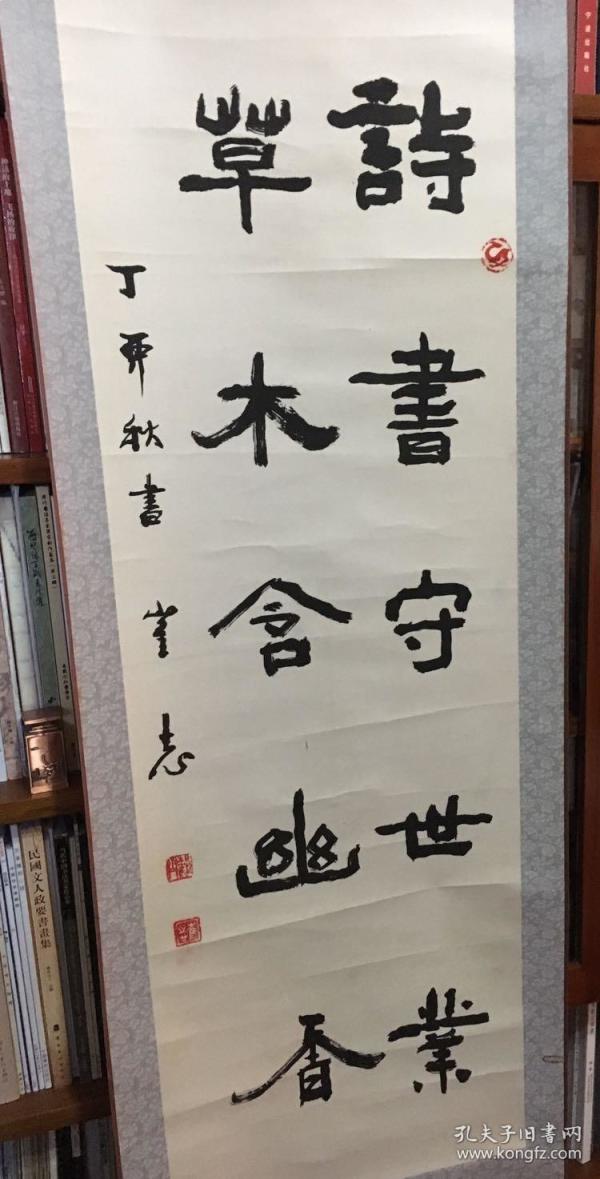 詩書守世業
草木含幽香
丁亥秋書 崔志
民國文人政要書畫集
孔夫子旧書网
www.kongfz.com